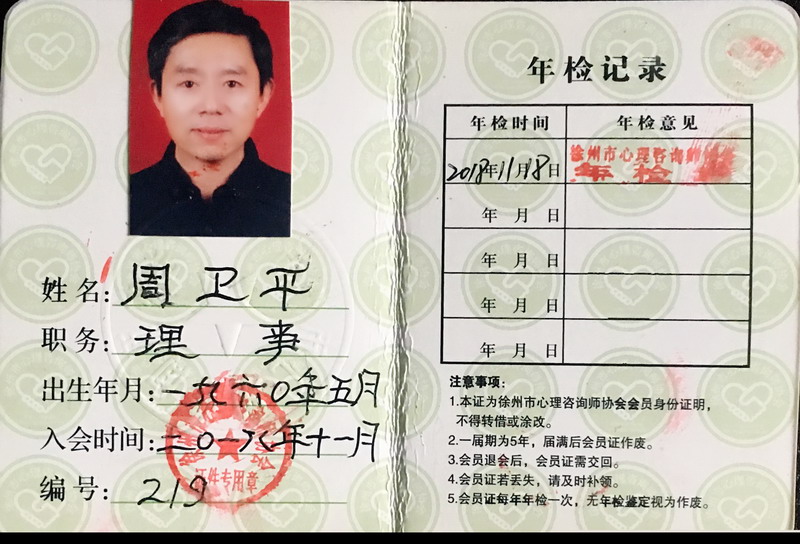 姓名：周卫平
职务：理事
出生年月：一九六〇年五月
入会时间：二〇一八年十一月
编号：219
证件专用章
年检记录
年检时间 年检意见
2018年11月18日 徐州市心理咨询师
年检
年 月 日
年 月 日
年 月 日
年 月 日
注意事项：
1.本证为徐州市心理咨询师协会会员身份证明，
不得转借或涂改。
2.一届期为5年，届满后会员证作废。
3.会员退会后，会员证需交回。
4.会员证若丢失，请及时补领。
5.会员证每年年检一次，无年检鉴定视为作废。